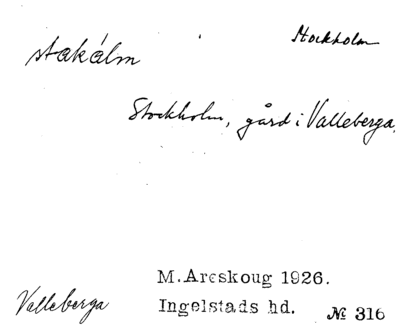 Stockholm
stakálm
Stockholm, gård i Valleberga,
M. Areskoug 1926.
Valleberga
Ingelstads hd.
№ 316